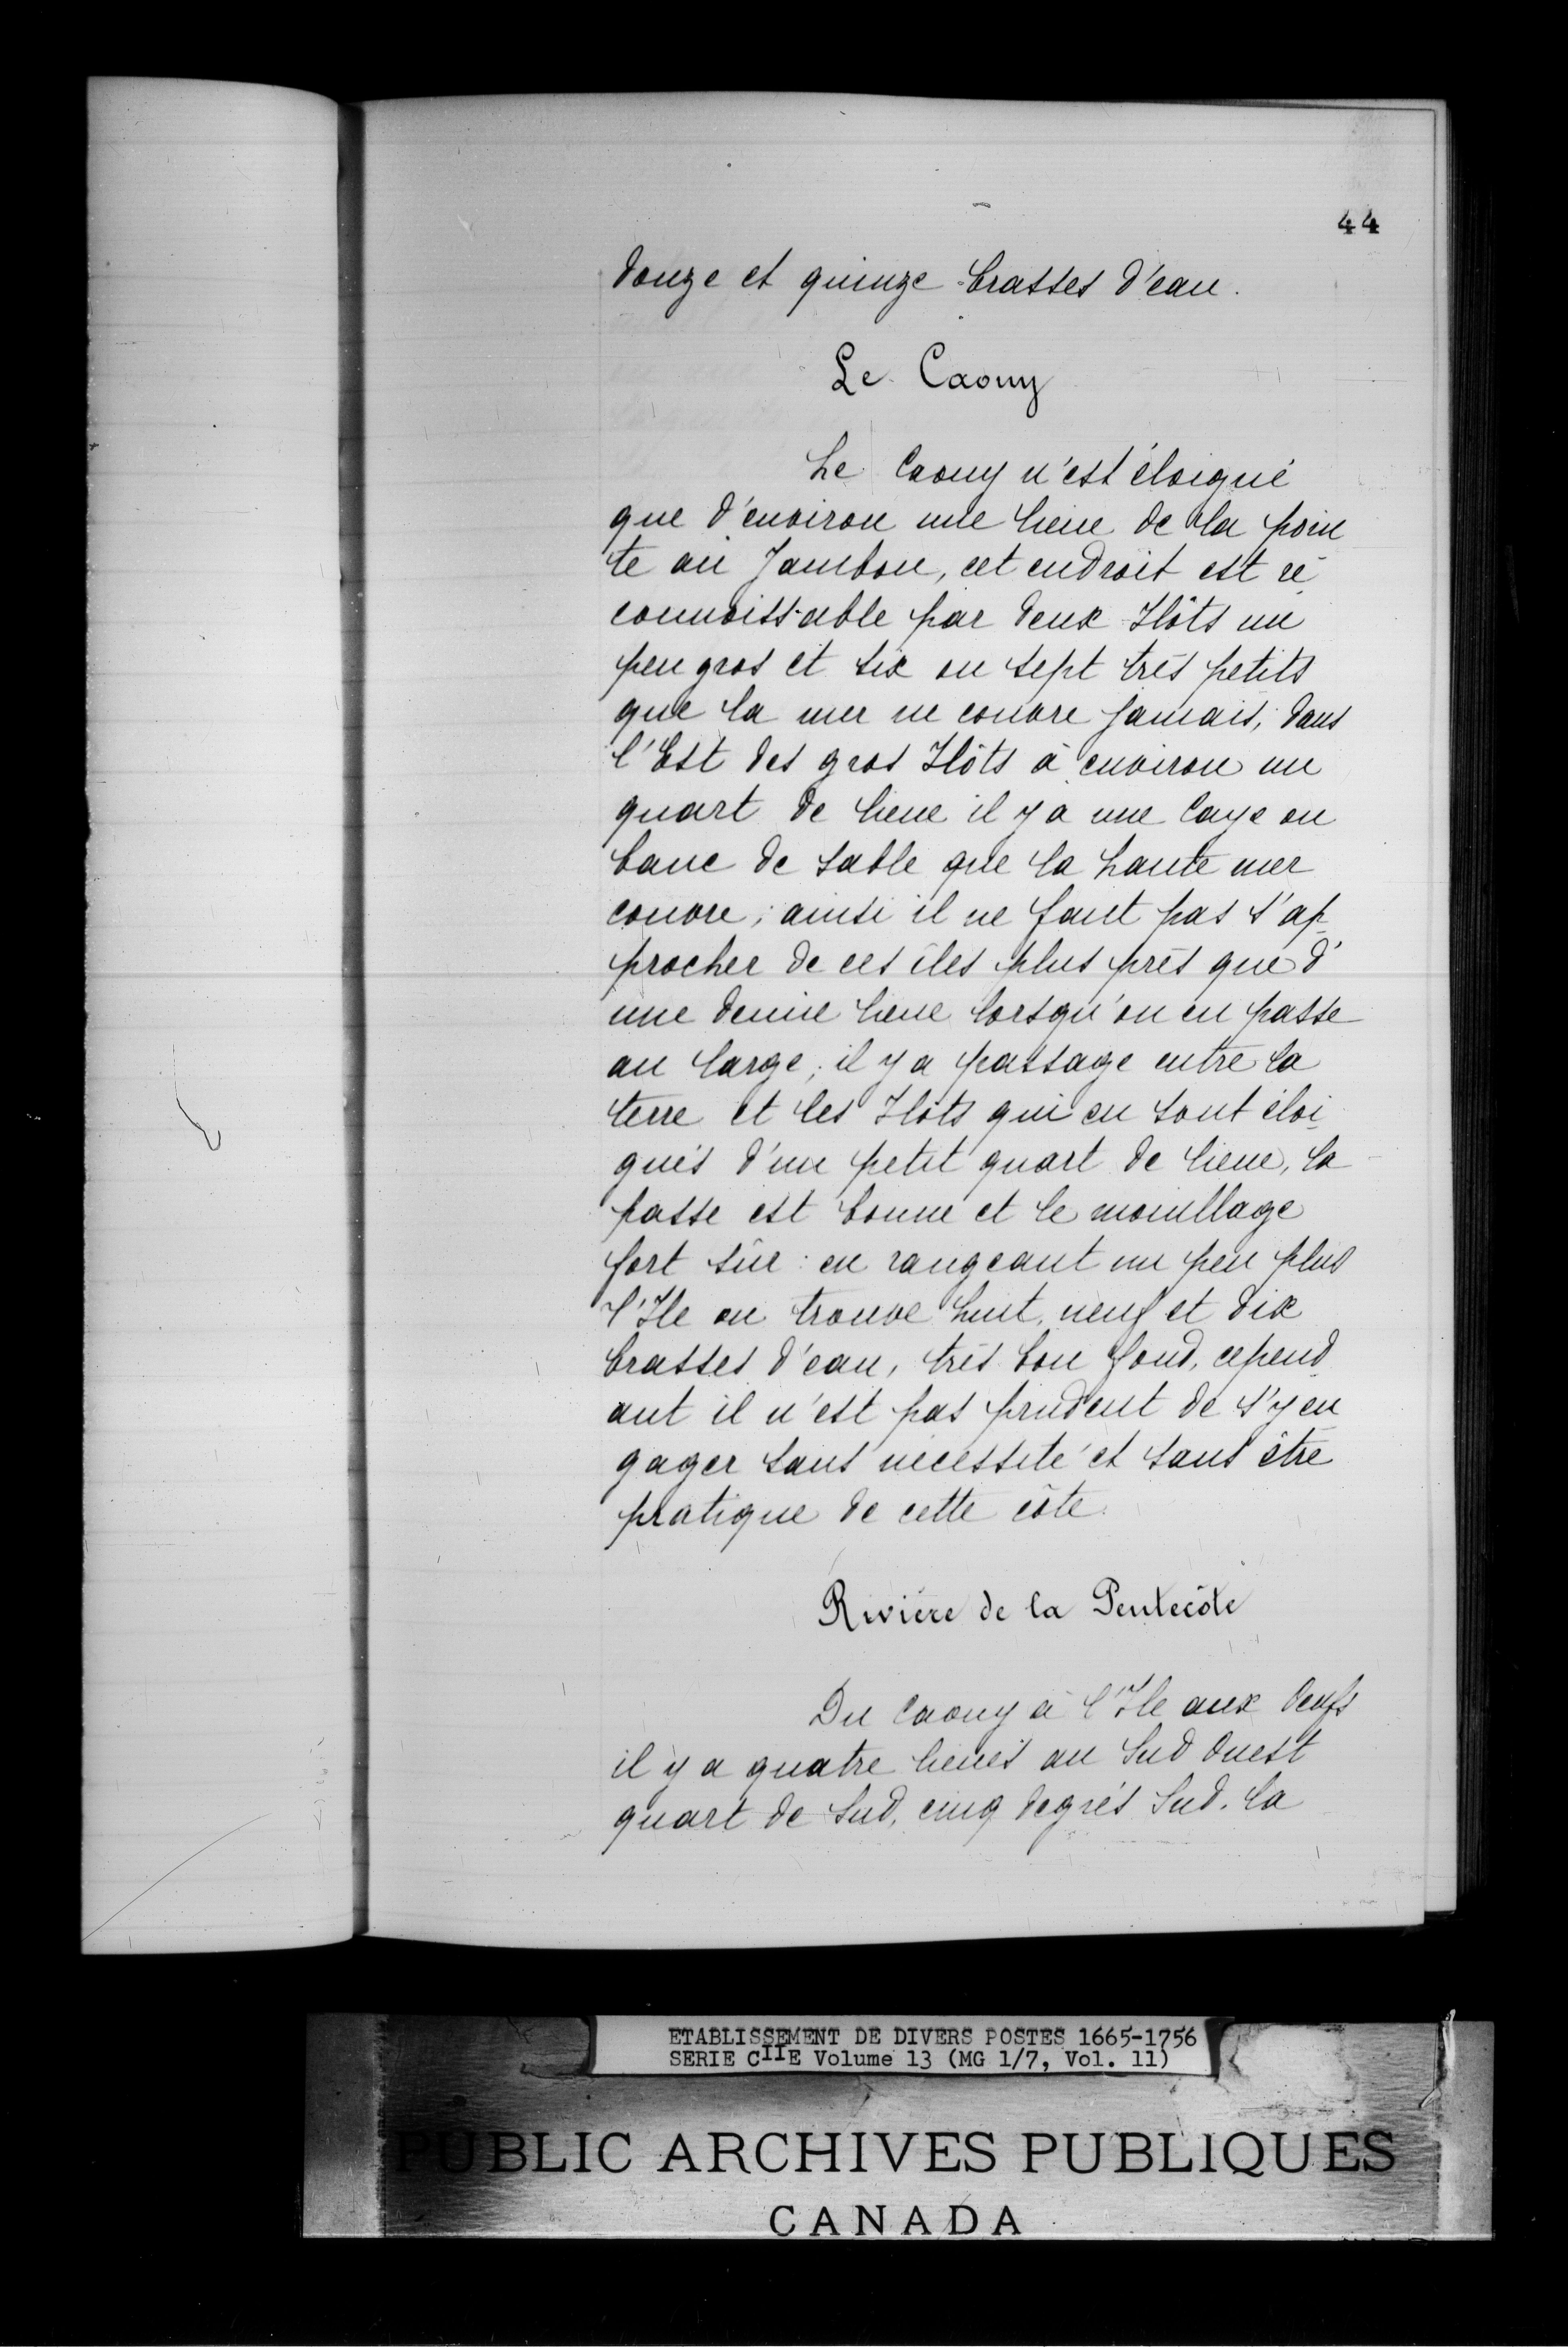 44
douze et quinze brasses d'eau.
Le Caouy
Le Caouy n'est éloigné
que d'environ une lieue de la poin
te au Jambon, cet endroit est re
connoissable par deux Ilôts un
peu gros et six ou sept très petits
que la mer ne couvre jamais, dans
l'Est des gros Ilôts à environ un
quart de lieue il y a une Caye ou
banc de sable que la haute mer
couvre; ainsi il ne faut pas s'ap
procher de ces îles plus près que d'
une demie lieue lorsqu'on en passe
au large; il y a passage entre la
terre et les Ilôts qui en sont éloi
gnés d'un petit quart de lieue, la
passe est bonne et le mouillage
fort sûr: en rangeant un peu plus
l'Ile on trouve huit, neuf et dix
brasses d'eau, très bon fond, cepend
ant il n'est pas prudent de s'y en
gager sans nécessité et sans être
pratique de cette côte.
Rivière de la Pentecôte
Du Caouy à l'Ile aux Oeufs
il y a quatre lieues au Sud Ouest
quart de Sud, cinq degrés Sud. la
ETABLISSEMENT DE DIVERS POSTES 1665-1756
SERIE CIIE Volume 13 (MG 1/7, Vol. 11)
PUBLIC ARCHIVES PUBLIQUES
CANADA